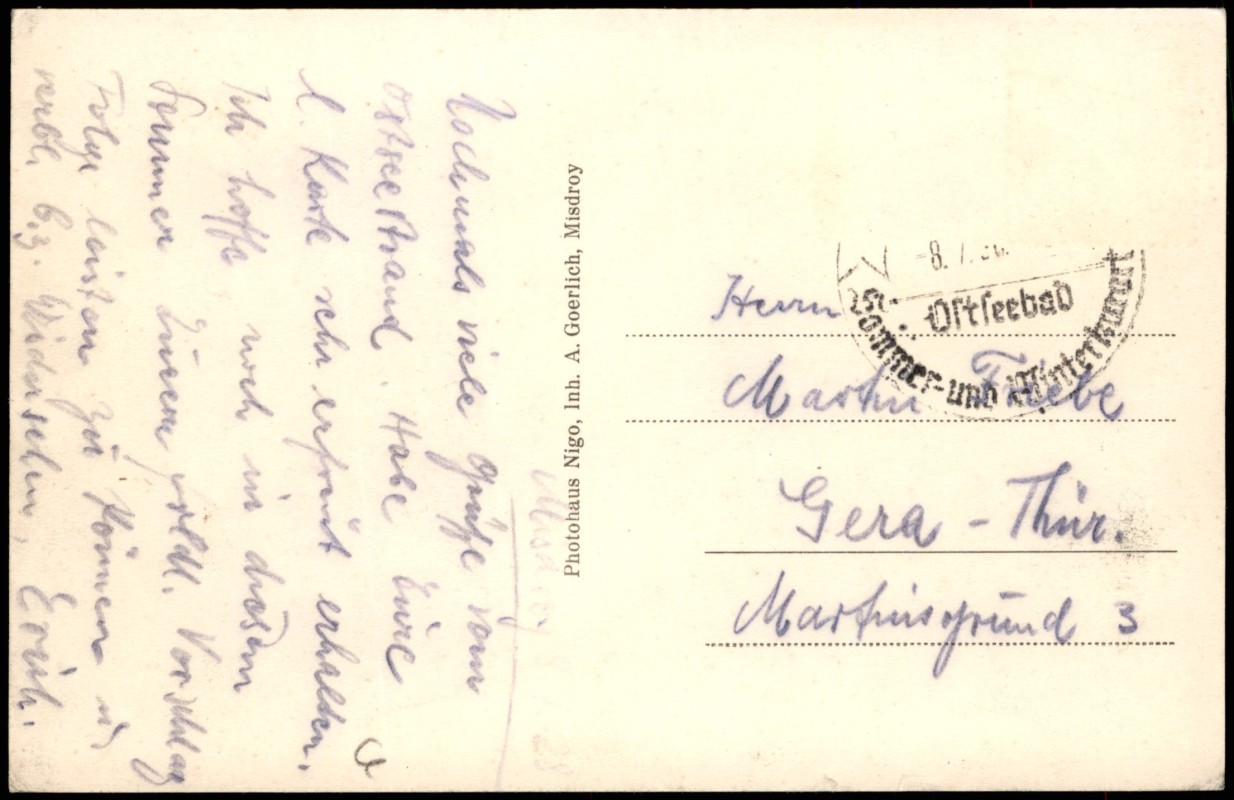 Misdroy
Nochmals viele Grüße vom
Ostseestrand. Habe Eure
l. Karte sehr erfreut erhalten.
Ich hoffe noch in diesem
Sommer Euerm frdl. Vorschlag
Folge leisten zu können u.
verbl. b. z. Wiedersehen, Erich.
Photohaus Nigo, Inh. A. Goerlich, Misdroy
8. 7. 36.
Ostseebad
Sommer- und Winterkurort
Herrn
Martin Friebe
Gera - Thür.
Martinsgrund 3